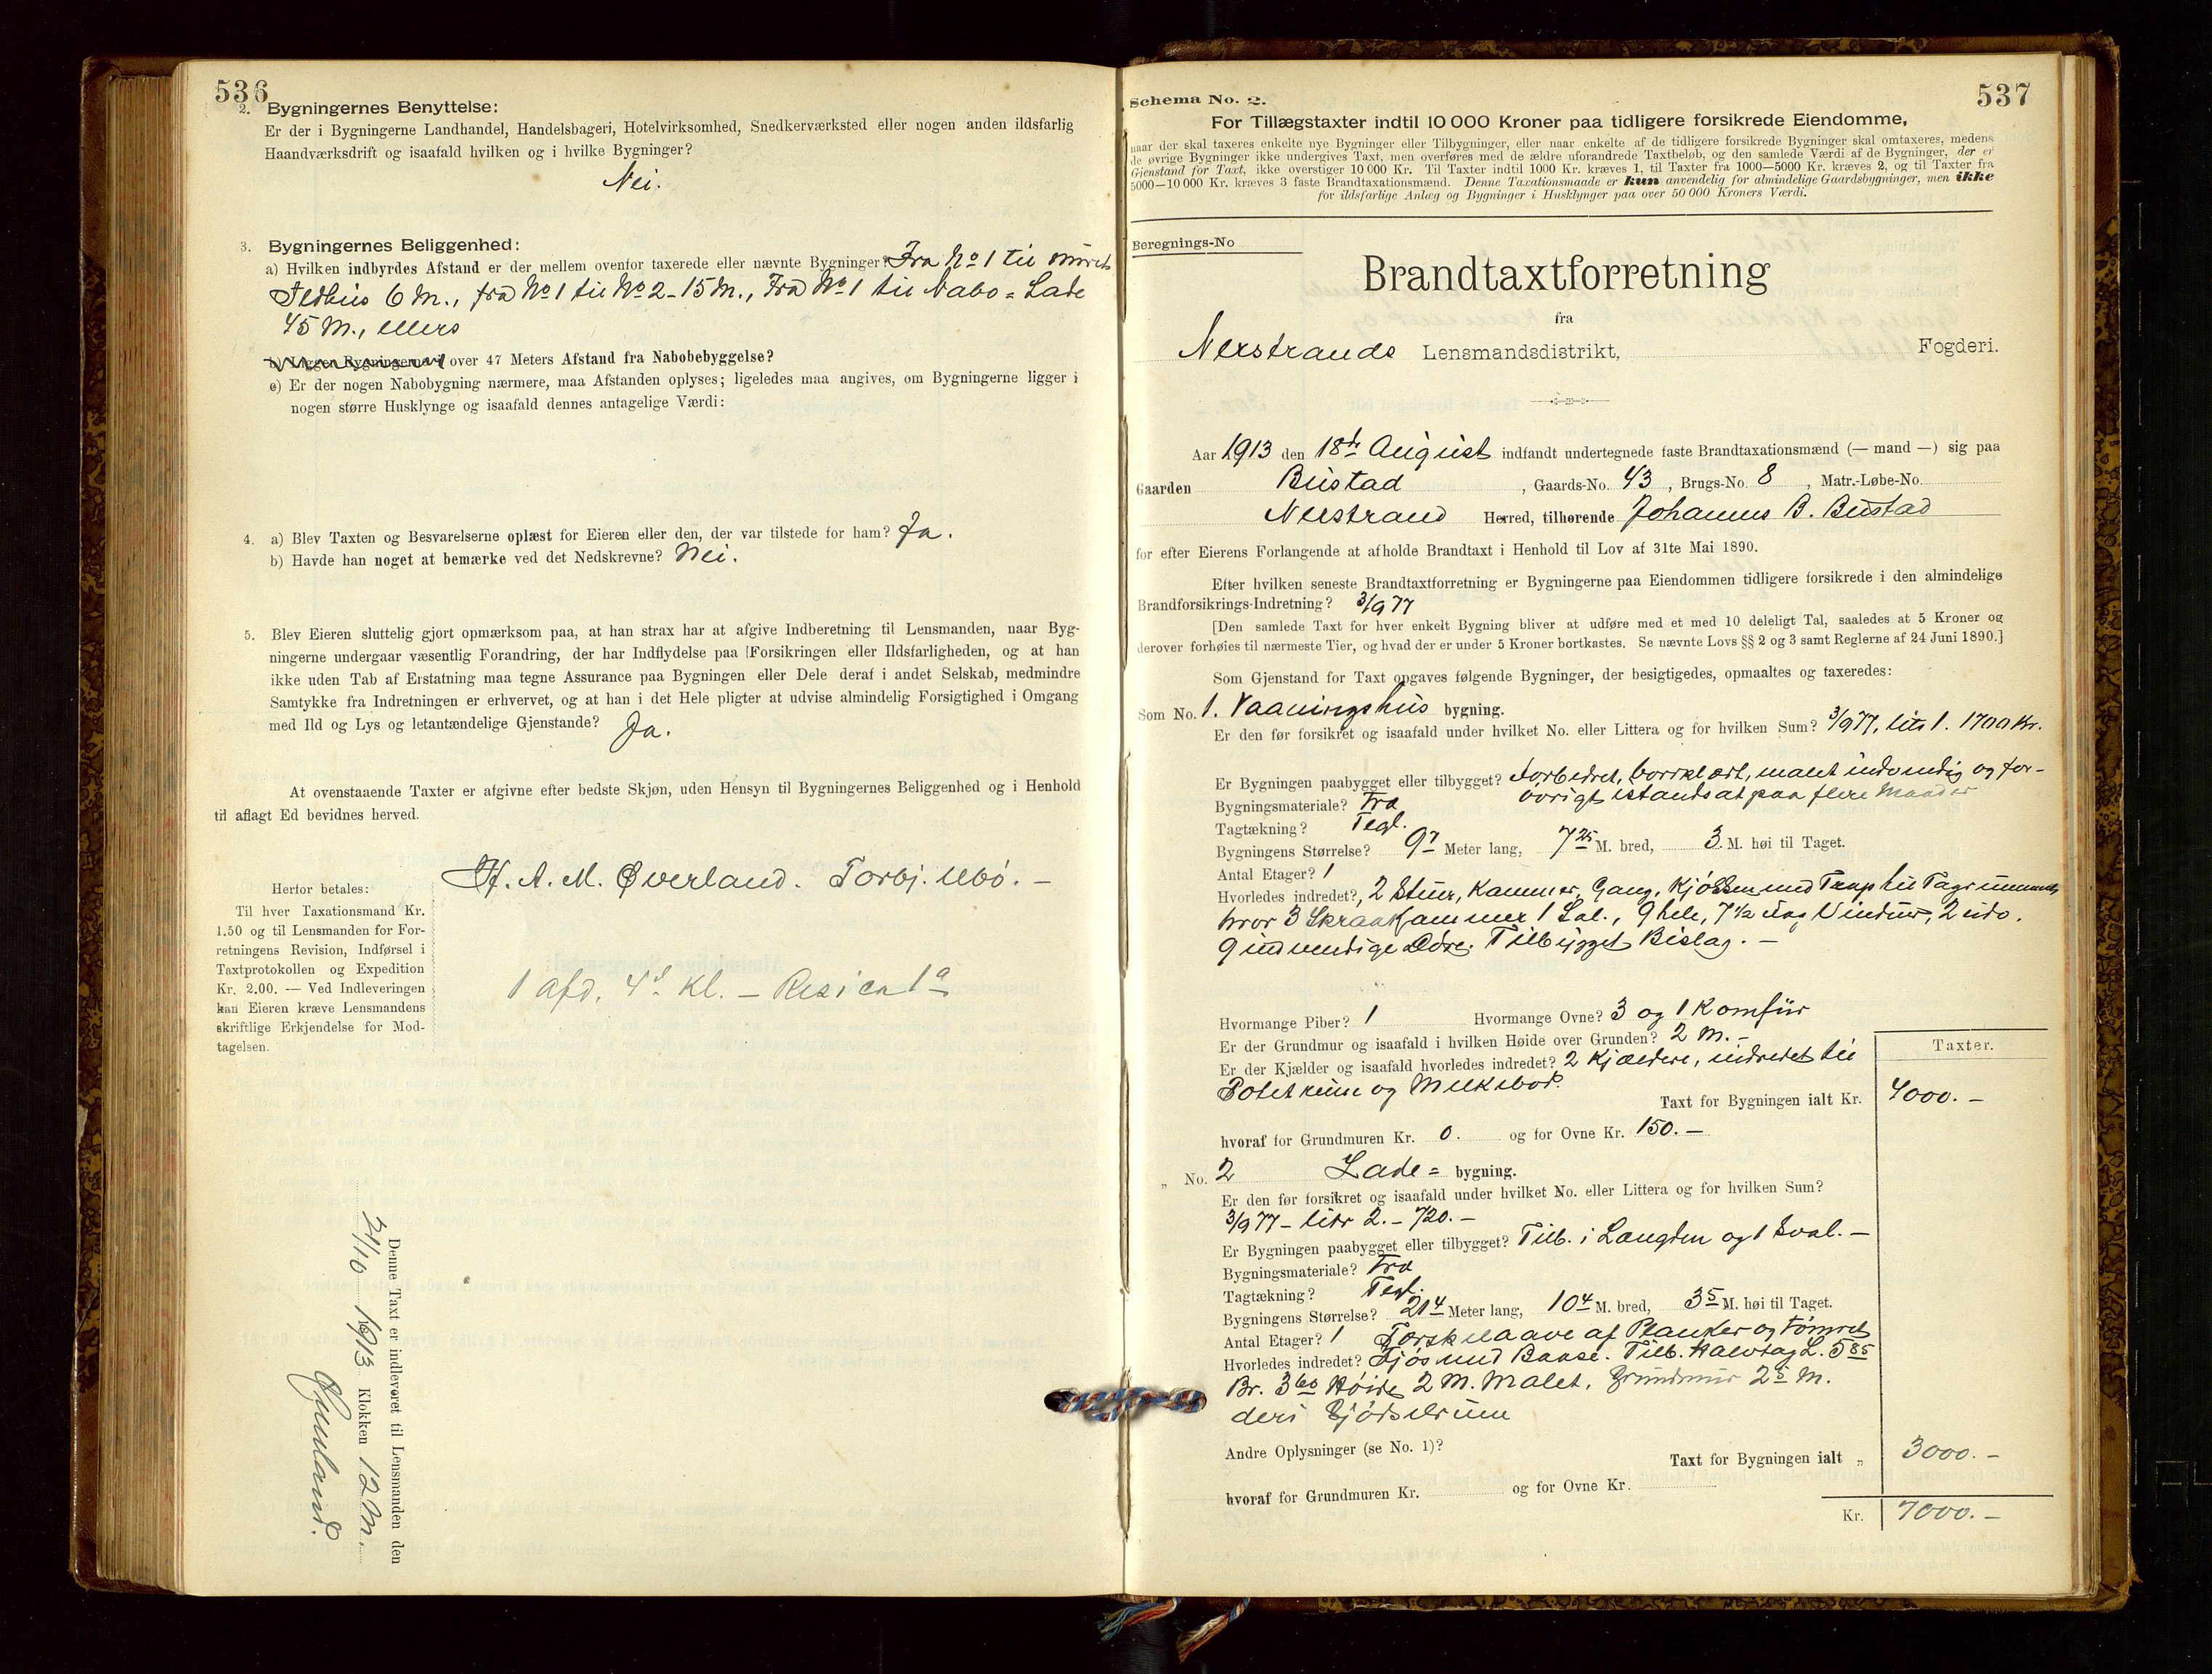 536
2. Bygningernes Benyttelse:
Er der i Bygningerne Landhandel, Handelsbageri, Hotelvirksomhed, Snedkerværksted eller nogen anden ildsfarlig
Haandværksdrift og isaafald hvilken og i hvilke Bygninger?
Nei.
3. Bygningernes Beliggenhed:
a) Hvilken indbyrdes Afstand er der mellem ovenfor taxerede eller nævnte Bygninger? Fra No 1 til muret
Ildhus 6 M., fra No 1 til No 2 - 15 M., Fra No 1 til Nabo = Lade
45 M., ellers
b) Ligger Bygningerne over 47 Meters Afstand fra Nabobebyggelse?
c) Er der nogen Nabobygning nærmere, maa Afstanden oplyses; ligeledes maa angives, om Bygningerne ligger i
nogen større Husklynge og isaafald dennes antagelige Værdi:
4. a) Blev Taxten og Besvarelserne oplæst for Eieren eller den, der var tilstede for ham? Ja.
b) Havde han noget at bemærke ved det Nedskrevne? Nei.
5. Blev Eieren sluttelig gjort opmærksom paa, at han strax har at afgive Indberetning til Lensmanden, naar Byg-
ningerne undergaar væsentlig Forandring, der har Indflydelse paa Forsikringen eller Ildsfarligheden, og at han
ikke uden Tab af Erstatning maa tegne Assurance paa Bygningen eller Dele deraf i andet Selskab, medmindre
Samtykke fra Indretningen er erhvervet, og at han i det Hele pligter at udvise almindelig Forsigtighed i Omgang
med Ild og Lys og letantændelige Gjenstande? Ja.
At ovenstaaende Taxter er afgivne efter bedste Skjøn, uden Hensyn til Bygningernes Beliggenhed og i Henhold
til aflagt Ed bevidnes herved.
H. A. M. Øverland. Torbj. Ubø. -
Herfor betales:
Til hver Taxationsmand Kr.
1.50 og til Lensmanden for For-
retningens Revision, Indførsel i
Taxtprotokollen og Expedition
Kr. 2.00. — Ved Indleveringen
kan Eieren kræve Lensmandens
skriftlige Erkjendelse for Mod-
tagelsen.
1 afd. 4d. Kl. - Resica 1a
Denne Taxt er indleveret til Lensmanden den
21/10 1913 Klokken 12 M.
537
Schema No. 2.
For Tillægstaxter indtil 10 000 Kroner paa tidligere forsikrede Eiendomme,
naar der skal taxeres enkelte nye Bygninger eller Tilbygninger, eller naar enkelte af de tidligere forsikrede Bygninger skal omtaxeres, medens
de øvrige Bygninger ikke undergives Taxt, men overføres med de ældre uforandrede Taxtbeløb, og den samlede Værdi af de Bygninger, der er
Gjenstand for Taxt, ikke overstiger 10 000 Kr. Til Taxter indtil 1000 Kr. kræves 1, til Taxter fra 1000—5000 Kr. kræves 2, og til Taxter fra
5000—10 000 Kr. kræves 3 faste Brandtaxationsmænd. Denne Taxationsmaade er kun anvendelig for almindelige Gaardsbygninger, men ikke
for ildsfarlige Anlæg og Bygninger i Husklynger paa over 50 000 Kroners Værdi.
Beregnings-No
Brandtaxtforretning
fra
Nerstrands Lensmandsdistrikt, Fogderi.
Aar 1913 den 18de August indfandt undertegnede faste Brandtaxationsmænd (— mand —) sig paa
Gaarden Bustad, Gaards-No. 43, Brugs-No. 8, Matr.-Løbe-No.
Nerstrand Herred, tilhørende Johannes B. Bustad
for efter Eierens Forlangende at afholde Brandtaxt i Henhold til Lov af 31te Mai 1890.
Efter hvilken seneste Brandtaxtforretning er Bygningerne paa Eiendommen tidligere forsikrede i den almindelige
Brandforsikrings-Indretning? 3/9 77
[Den samlede Taxt for hver enkelt Bygning bliver at udføre med et med 10 deleligt Tal, saaledes at 5 Kroner og
derover forhøies til nærmeste Tier, og hvad der er under 5 Kroner bortkastes. Se nævnte Lovs §§ 2 og 3 samt Reglerne af 24 Juni 1890.]
Som Gjenstand for Taxt opgaves følgende Bygninger, der besigtigedes, opmaaltes og taxeredes:
Som No. 1. Vaaningshus bygning.
Er den før forsikret og isaafald under hvilket No. eller Littera og for hvilken Sum? 3/9 77, litr 1. 1700 Kr.
Er Bygningen paabygget eller tilbygget? Forbedret, bordklædt, malet indvendig og for-
øvrigt istandsat paa flere Maader
Bygningsmateriale? Træ
Tagtækning? Tegl.
Bygningens Størrelse? 9 7 Meter lang, 7 25 M. bred, 3 M. høi til Taget.
Antal Etager? 1
Hvorledes indredet? 2 Stuer, Kammer, Gang, Kjøkken med Trap til Tagrummet
hvor 3 Skraakammer 1 Sal., 9 hele, 7 1/2 Fag Vinduer, 2 udv.
9 indvendige Døre. Tilbygget Bislag. -
Hvormange Piber? 1 Hvormange Ovne? 3 og 1 Komfur
Er der Grundmur og isaafald i hvilken Høide over Grunden? 2 M. -
Er der Kjælder og isaafald hvorledes indredet? 2 Kjældere, indredet til
Potetrum og Melkebod.
Taxter.
Taxt for Bygningen ialt Kr. 4000. -
hvoraf for Grundmuren Kr. 0. og for Ovne Kr. 150. -
„ No. 2 Lade = bygning.
Er den før forsikret og isaafald under hvilket No. eller Littera og for hvilken Sum?
3/9 77 - litr 2. - 720. -
Er Bygningen paabygget eller tilbygget? Tilb. i Længden og 1 Sval. -
Bygningsmateriale? Træ
Tagtækning? Tegl.
Bygningens Størrelse? 21 4 Meter lang, 10 4 M. bred, 3 5 M. høi til Taget.
Antal Etager? 1 Tærskelaave af Planker og tømret
Hvorledes indredet? Fjøs med Baase. Tilb. Halvtag L. 5 85
Br. 3 60 Høide 2 M. Malet. Grundmur 2 5 M.
deri Gjødselrum
Andre Oplysninger (se No. 1)?
Taxt for Bygningen ialt „ 3000. -
hvoraf for Grundmuren Kr. og for Ovne Kr.
Kr. 7000. -